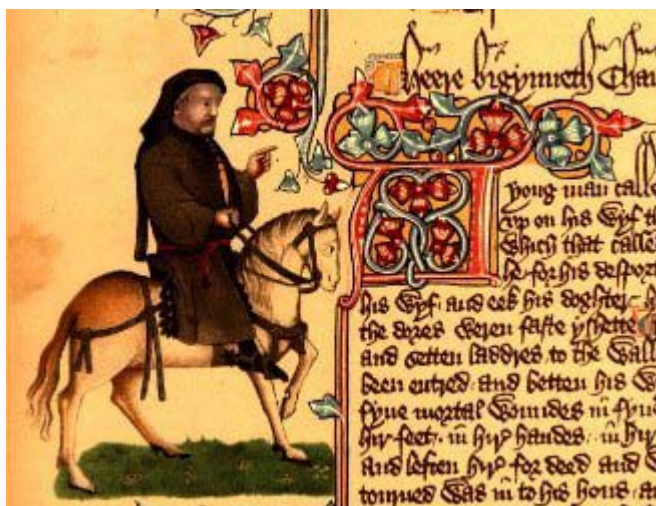 heere bigynneth Chau
A
yong man calle
vp on his Wyf th
Which that calle
he for his desport
his Wyf and eek his doghter h
the dores Weren faste yshette
and setten laddres to the Wall
been entred and betten his W
fyue mortal Woundes in fyue
hir feet in hir handes in hir
And leften hir for deed and W
tourned Was in to his hous a